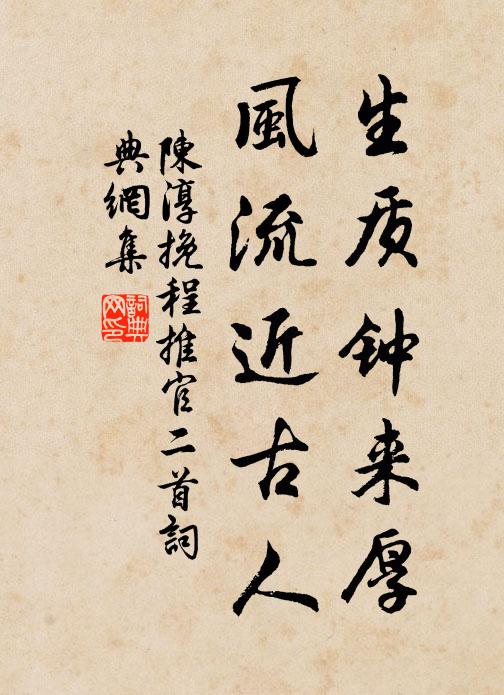 生质钟来厚
風流近古人
陳淳挽程推官二首詞
典網集
詞典网印